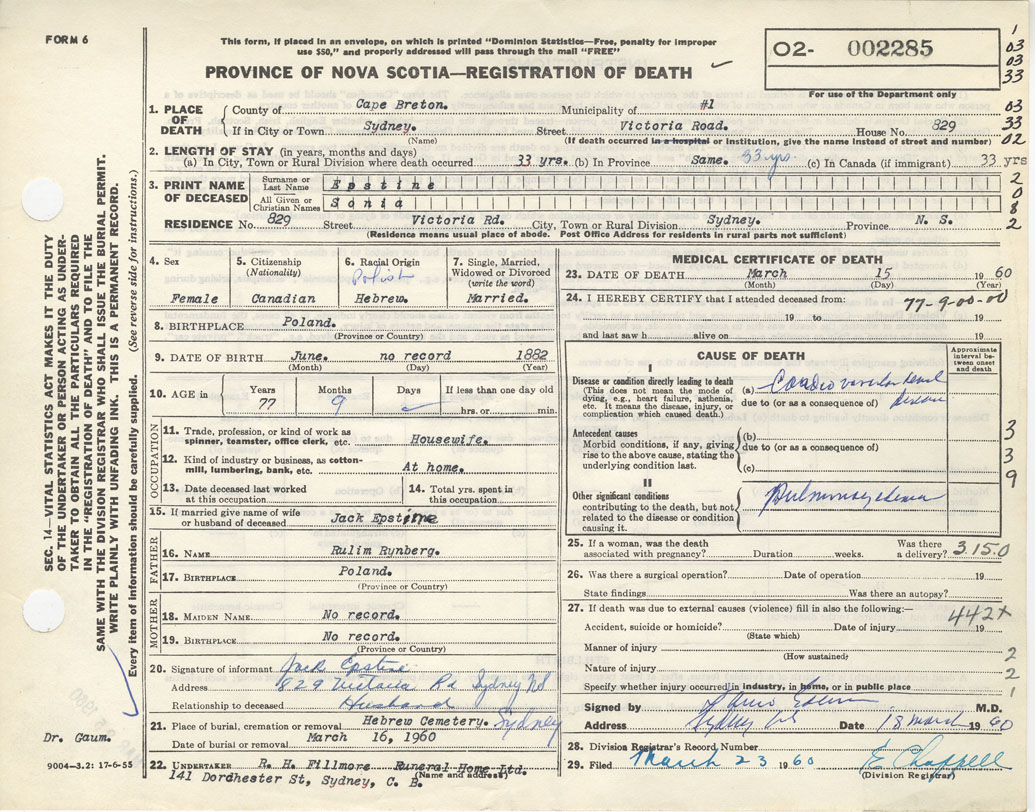 FORM 6
This form, if placed in an envelope, on which is printed "Dominion Statistics—Free, penalty for improper
use $50," and properly addressed will pass through the mail "FREE"
PROVINCE OF NOVA SCOTIA—REGISTRATION OF DEATH
02- 002285
For use of the Department only
1
03
03
33
03
33
02
2
0
8
2
1. PLACE OF DEATH
County of Cape Breton. Municipality of #1
If in City or Town Sydney. Street Victoria Road. House No. 829
(Name) (If death occurred in a hospital or institution, give the name instead of street and number)
2. LENGTH OF STAY (in years, months and days)
(a) In City, Town or Rural Division where death occurred 33 yrs. (b) In Province Same. 33 yrs (c) In Canada (if immigrant) 33 yrs
3. PRINT NAME OF DECEASED
Surname or Last Name Epstine
All Given or Christian Names Sonia
RESIDENCE No. 829 Street Victoria Rd. City, Town or Rural Division Sydney. Province N. S.
(Residence means usual place of abode. Post Office Address for residents in rural parts not sufficient)
4. Sex Female
5. Citizenship (Nationality) Canadian
6. Racial Origin Polish Hebrew.
7. Single, Married, Widowed or Divorced (write the word) Married.
8. BIRTHPLACE Poland.
(Province or Country)
9. DATE OF BIRTH June. no record 1882
(Month) (Day) (Year)
10. AGE in Years 77 Months 9 Days If less than one day old hrs. or min.
OCCUPATION
11. Trade, profession, or kind of work as spinner, teamster, office clerk, etc. Housewife.
12. Kind of industry or business, as cotton-mill, lumbering, bank, etc. At home.
13. Date deceased last worked at this occupation
14. Total yrs. spent in this occupation
15. If married give name of wife or husband of deceased Jack Epstine
FATHER
16. NAME Rulim Rynberg.
17. BIRTHPLACE Poland.
(Province or Country)
MOTHER
18. MAIDEN NAME No record.
19. BIRTHPLACE No record.
(Province or Country)
20. Signature of informant Jack Epstine
Address 829 Victoria Rd Sydney NS
Relationship to deceased Husband
21. Place of burial, cremation or removal Hebrew Cemetery. Sydney
Date of burial or removal March 16, 1960
22. UNDERTAKER R. H. Fillmore Funeral Home Ltd.
(Name and address)
141 Dorchester St, Sydney, C. B.
MEDICAL CERTIFICATE OF DEATH
23. DATE OF DEATH March 15 1960
(Month) (Day) (Year)
24. I HEREBY CERTIFY that I attended deceased from: 77-9-00-00
19 to 19
and last saw h alive on 19
CAUSE OF DEATH
Approximate interval between onset and death
I
Disease or condition directly leading to death
(This does not mean the mode of dying, e.g., heart failure, asthenia, etc. It means the disease, injury, or complication which caused death.)
(a) Cardio vascular renal disease
due to (or as a consequence of)
Antecedent causes
Morbid conditions, if any, giving rise to the above cause, stating the underlying condition last.
(b)
due to (or as a consequence of)
(c)
3
3
9
II
Other significant conditions
contributing to the death, but not related to the disease or condition causing it.
Pulmonary edema
25. If a woman, was the death associated with pregnancy? Duration weeks. Was there a delivery? 3150
26. Was there a surgical operation? Date of operation 19
State findings Was there an autopsy?
27. If death was due to external causes (violence) fill in also the following:—
442X
Accident, suicide or homicide? Date of injury 19
(State which)
Manner of injury 2
(How sustained)
Nature of injury 2
Specify whether injury occurred in industry, in home, or in public place 1
Signed by M.D.
Address Sydney Date 18 March 1960
28. Division Registrar's Record Number
29. Filed March 23 1960 E Chappell
(Division Registrar)
SEC. 14—VITAL STATISTICS ACT MAKES IT THE DUTY
OF THE UNDERTAKER OR PERSON ACTING AS UNDER-
TAKER TO OBTAIN ALL THE PARTICULARS REQUIRED
IN THE "REGISTRATION OF DEATH" AND TO FILE THE
SAME WITH THE DIVISION REGISTRAR WHO SHALL ISSUE THE BURIAL PERMIT.
WRITE PLAINLY WITH UNFADING INK. THIS IS A PERMANENT RECORD.
Every item of information should be carefully supplied. (See reverse side for instructions.)
Dr. Gaum.
9004—3.2: 17-6-55